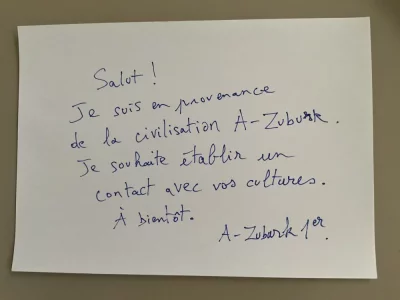 Salut !
Je suis en provenance
de la civilisation A-Zubark.
Je souhaite établir un
contact avec vos cultures.
À bientôt.
A-Zubark 1er.